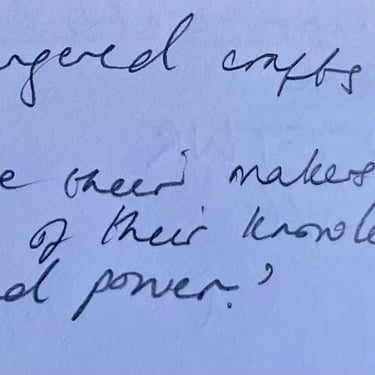 ngered crafts
e their makers
of their knowle
ed power.'